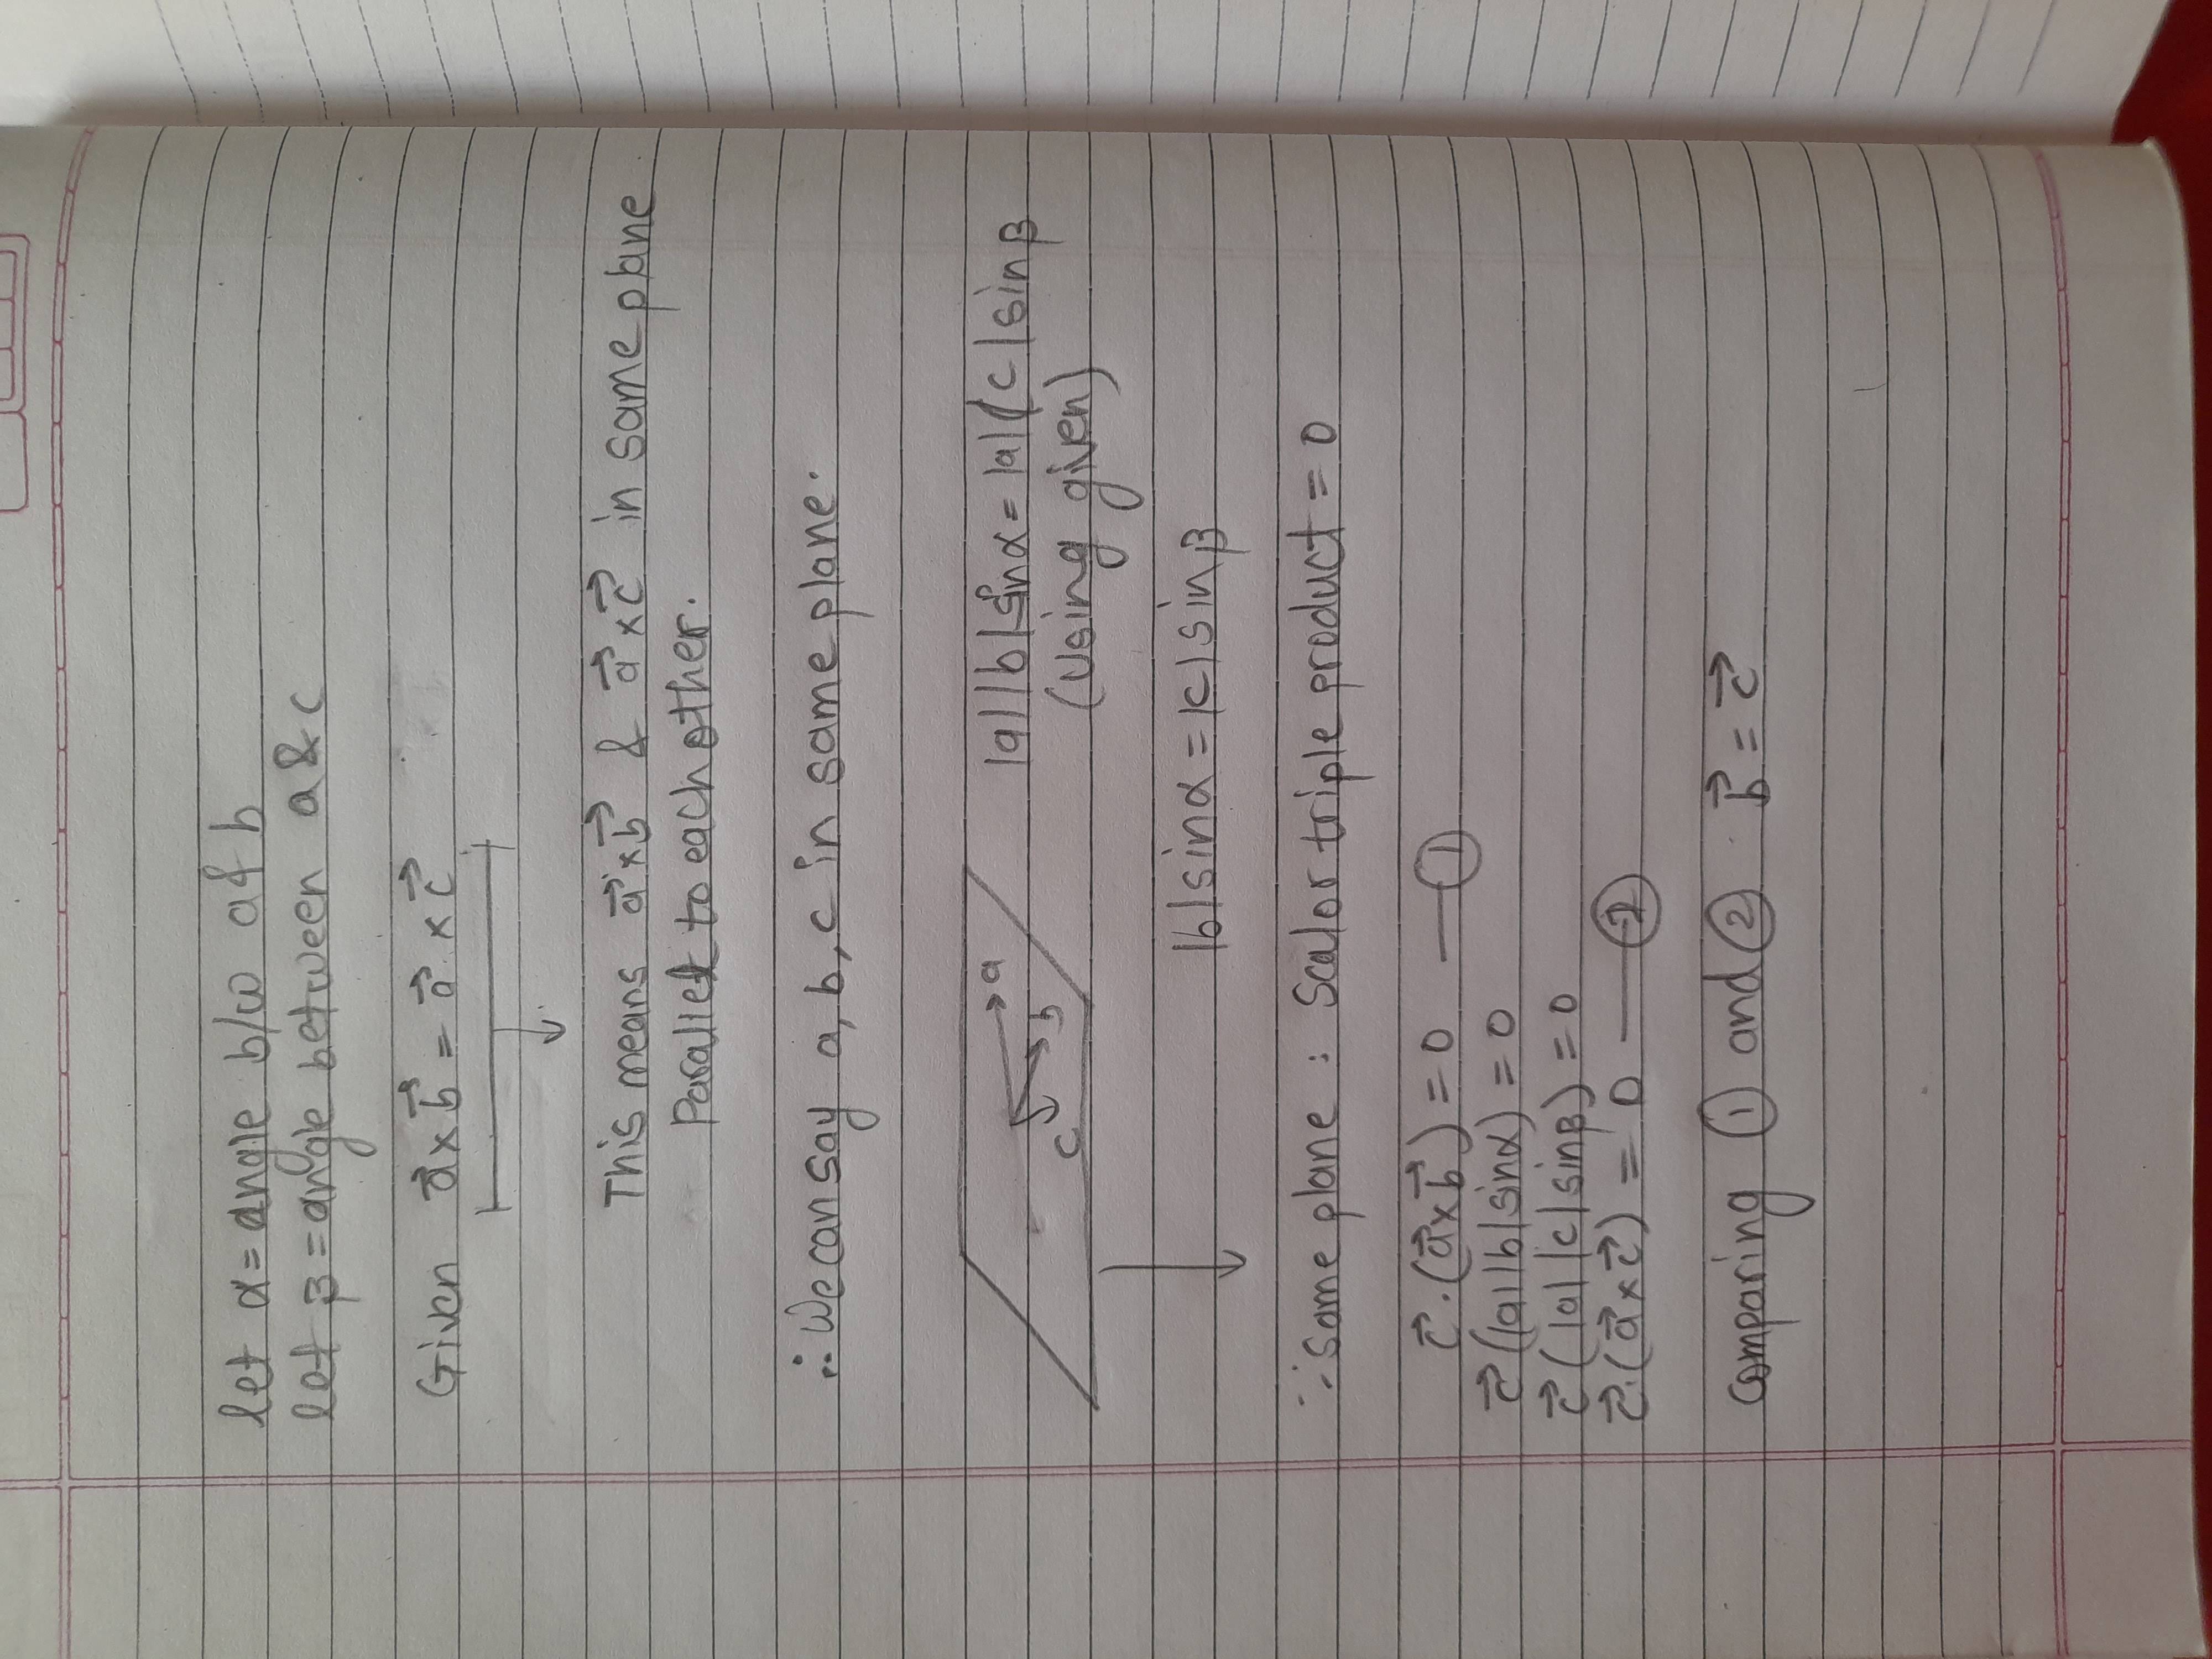 let α = angle b/w a & b
let β = angle between a & c
Given a⃗ x b⃗ = a⃗ x c⃗
This means a⃗ x b⃗ & a⃗ x c⃗ in same plane
Parallel to each other.
∴ We can say a, b, c in same plane.
a
b
c
|a||b|sinα = |a||c|sinβ
(Using given)
|b|sinα = |c|sinβ
∴ same plane : Scalor triple product = 0
c⃗.(a⃗xb⃗) = 0 —— ①
c⃗(|a||b|sinα) = 0
c⃗(|a||c|sinβ) = 0
c⃗.(a⃗xc⃗) = 0 —— ②
Comparing ① and ② b⃗ = c⃗